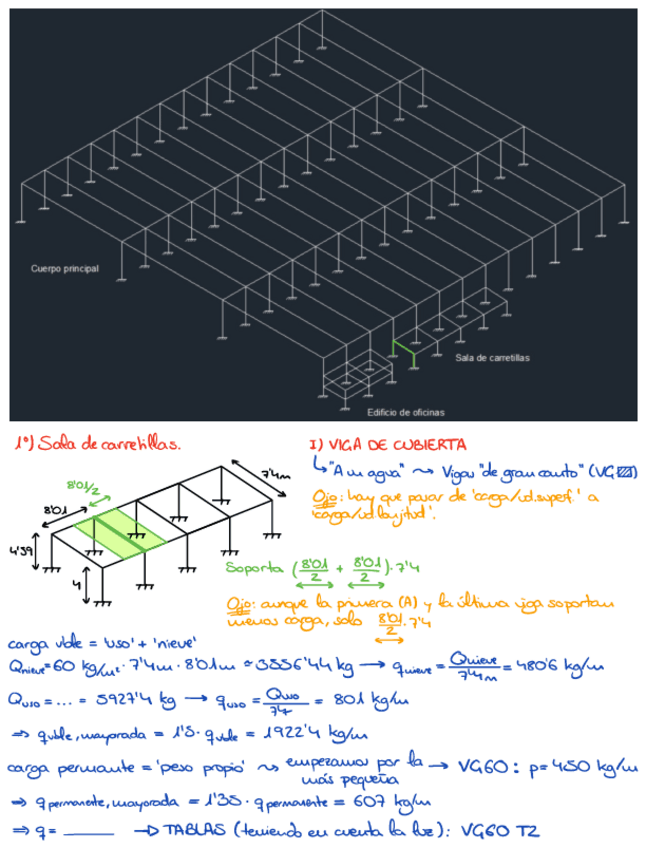 Cuerpo principal
Sala de carretillas
Edificio de oficinas
1º) Sala de carretillas.
I) VIGA DE CUBIERTA
↳ "A un agua" ⇝ Vigas "de gran canto" (VG)
Ojo: hay que pasar de 'carga/ud.superf.' a
'carga/ud.longitud'.
7'4m
8'01/2
8'01
4'39
4
Soporta (8'01/2 + 8'01/2)·7'4
Ojo: aunque la primera (A) y la última viga soportan
menos carga, solo 8'01/2·7'4
carga vble = 'uso' + 'nieve'
Qnieve = 60 kg/m²·7'4m·8'01m ≈ 3556'44 kg → qnieve = Qnieve/7'4m = 480'6 kg/m
Quso = ... = 5927'4 kg → quso = Quso/7'4 = 801 kg/m
⇒ qvble, mayorada = 1'5·qvble = 1922'4 kg/m
carga permanente = 'peso propio' ⇝ empezamos por la más pequeña → VG60: p=450 kg/m
⇒ qpermanente, mayorada = 1'35·qpermanente = 607 kg/m
⇒ q = ______ → TABLAS (teniendo en cuenta la luz): VG60 T2